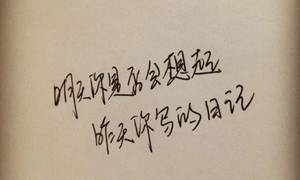 明天你是否会想起
昨天你写的日记